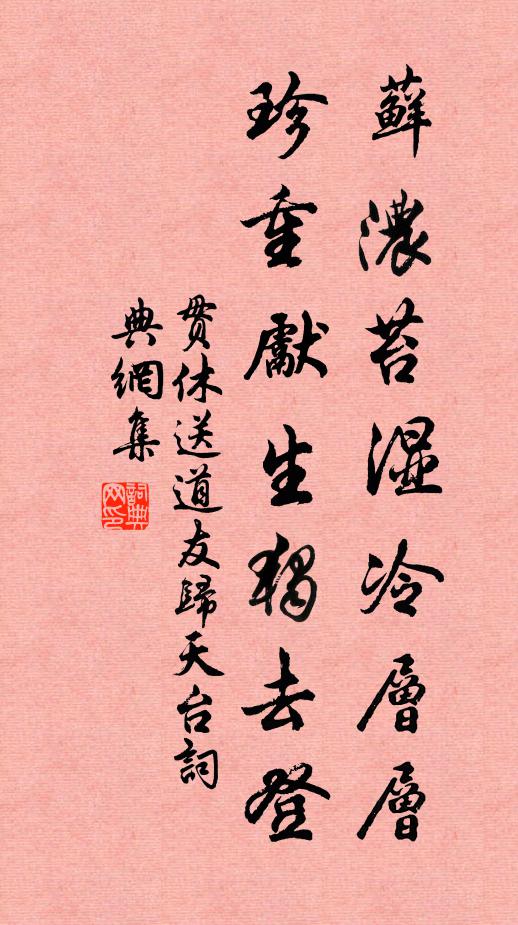 蘚濃苔濕冷層層
珍重獻生獨去登
貫休送道友歸天台詞
典網集
詞典
网印